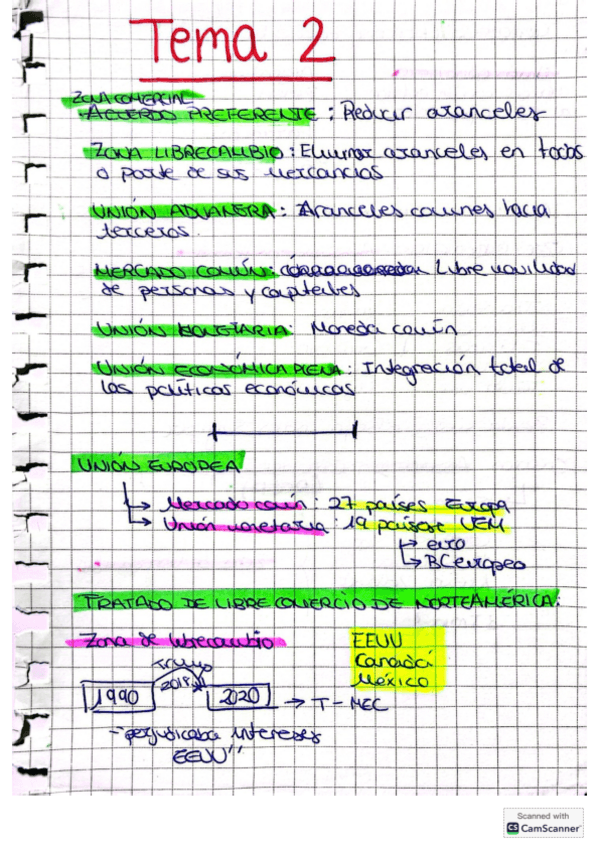 Tema 2
ZONA COMERCIAL
ACUERDO PREFERENTE : Reducir aranceles
ZONA LIBRECAMBIO : Eliminar aranceles en todas
o parte de sus mercancías
UNIÓN ADUANERA : Aranceles comunes hacia
terceros.
MERCADO COMÚN : Libre movilidad
de personas y capitales
UNIÓN MONETARIA : Moneda común
UNIÓN ECONÓMICA PLENA : Integración total de
las políticas económicas
UNIÓN EUROPEA
Mercado común : 27 países Europa
Unión monetaria : 19 países UEM
euro
BC europeo
TRATADO DE LIBRE COMERCIO DE NORTEAMÉRICA:
Zona de librecambio
EEUU
Canadá
México
Trump
2018
1990
2020 → T-MEC
"perjudicaba intereses
EEUU"
Scanned with
CS CamScanner